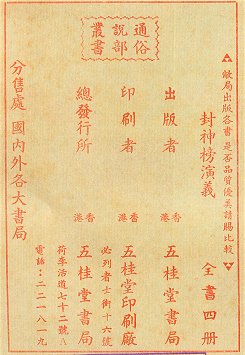 通俗
說部
叢書
▲敝局出版各書是否品質優美請賜比較▲
封神榜演義 全書四册
出版者 香港 五桂堂書局
印刷者 香港 五桂堂印刷廠
必列者士街十六號
總發行所 香港 五桂堂書局
荷李活道七十二號A
電話：二二一八一九
分售處 國內外各大書局